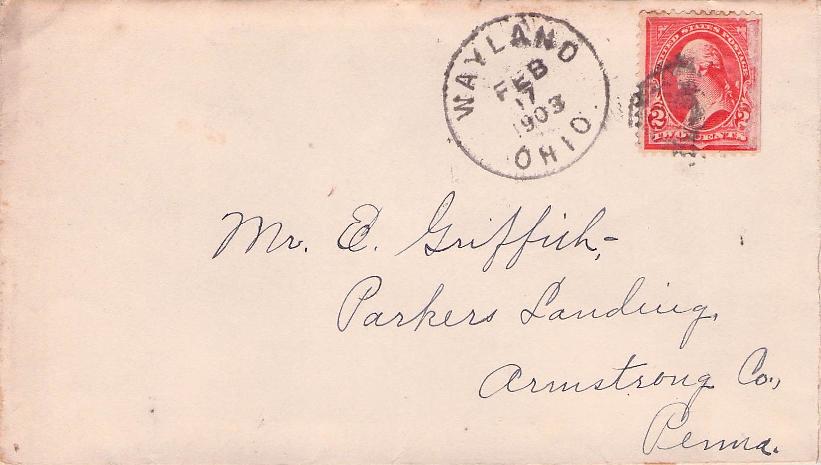 WAYLAND
FEB
17
1903
OHIO.
UNITED STATES POSTAGE
2 2
TWO CENTS
Mr. E. Griffith,-
Parkers Landing,
Armstrong Co.,
Penna.